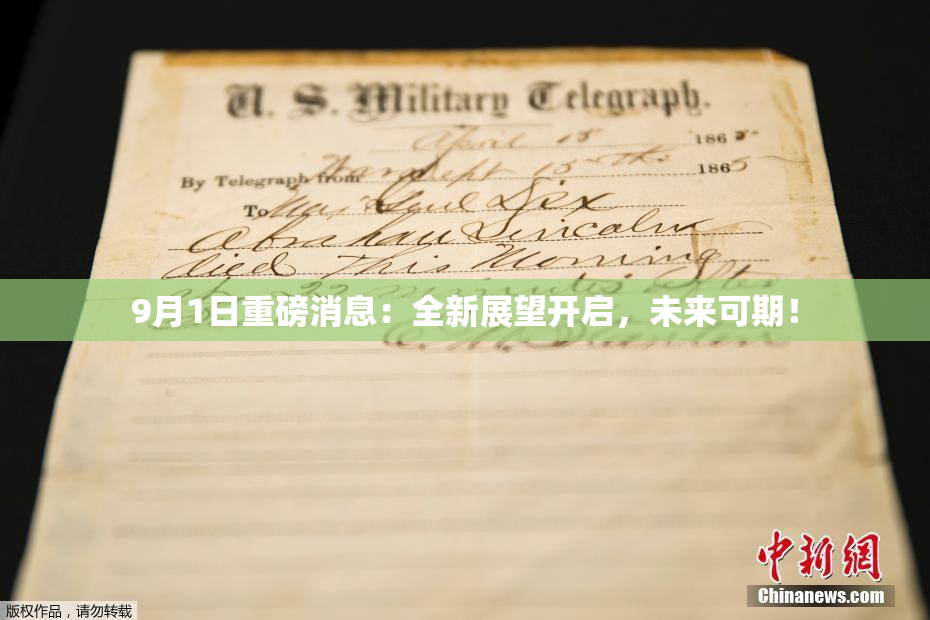 U. S. Military Telegraph.
April 15 1865
By Telegraph from War Dept 15th 1865
To Maj Genl Dix
Abraham Lincoln
died This Morning
at 22 minutes after
9月1日重磅消息：全新展望开启，未来可期！
E. M. Stanton
中新網
Chinanews.com
版权作品，请勿转载